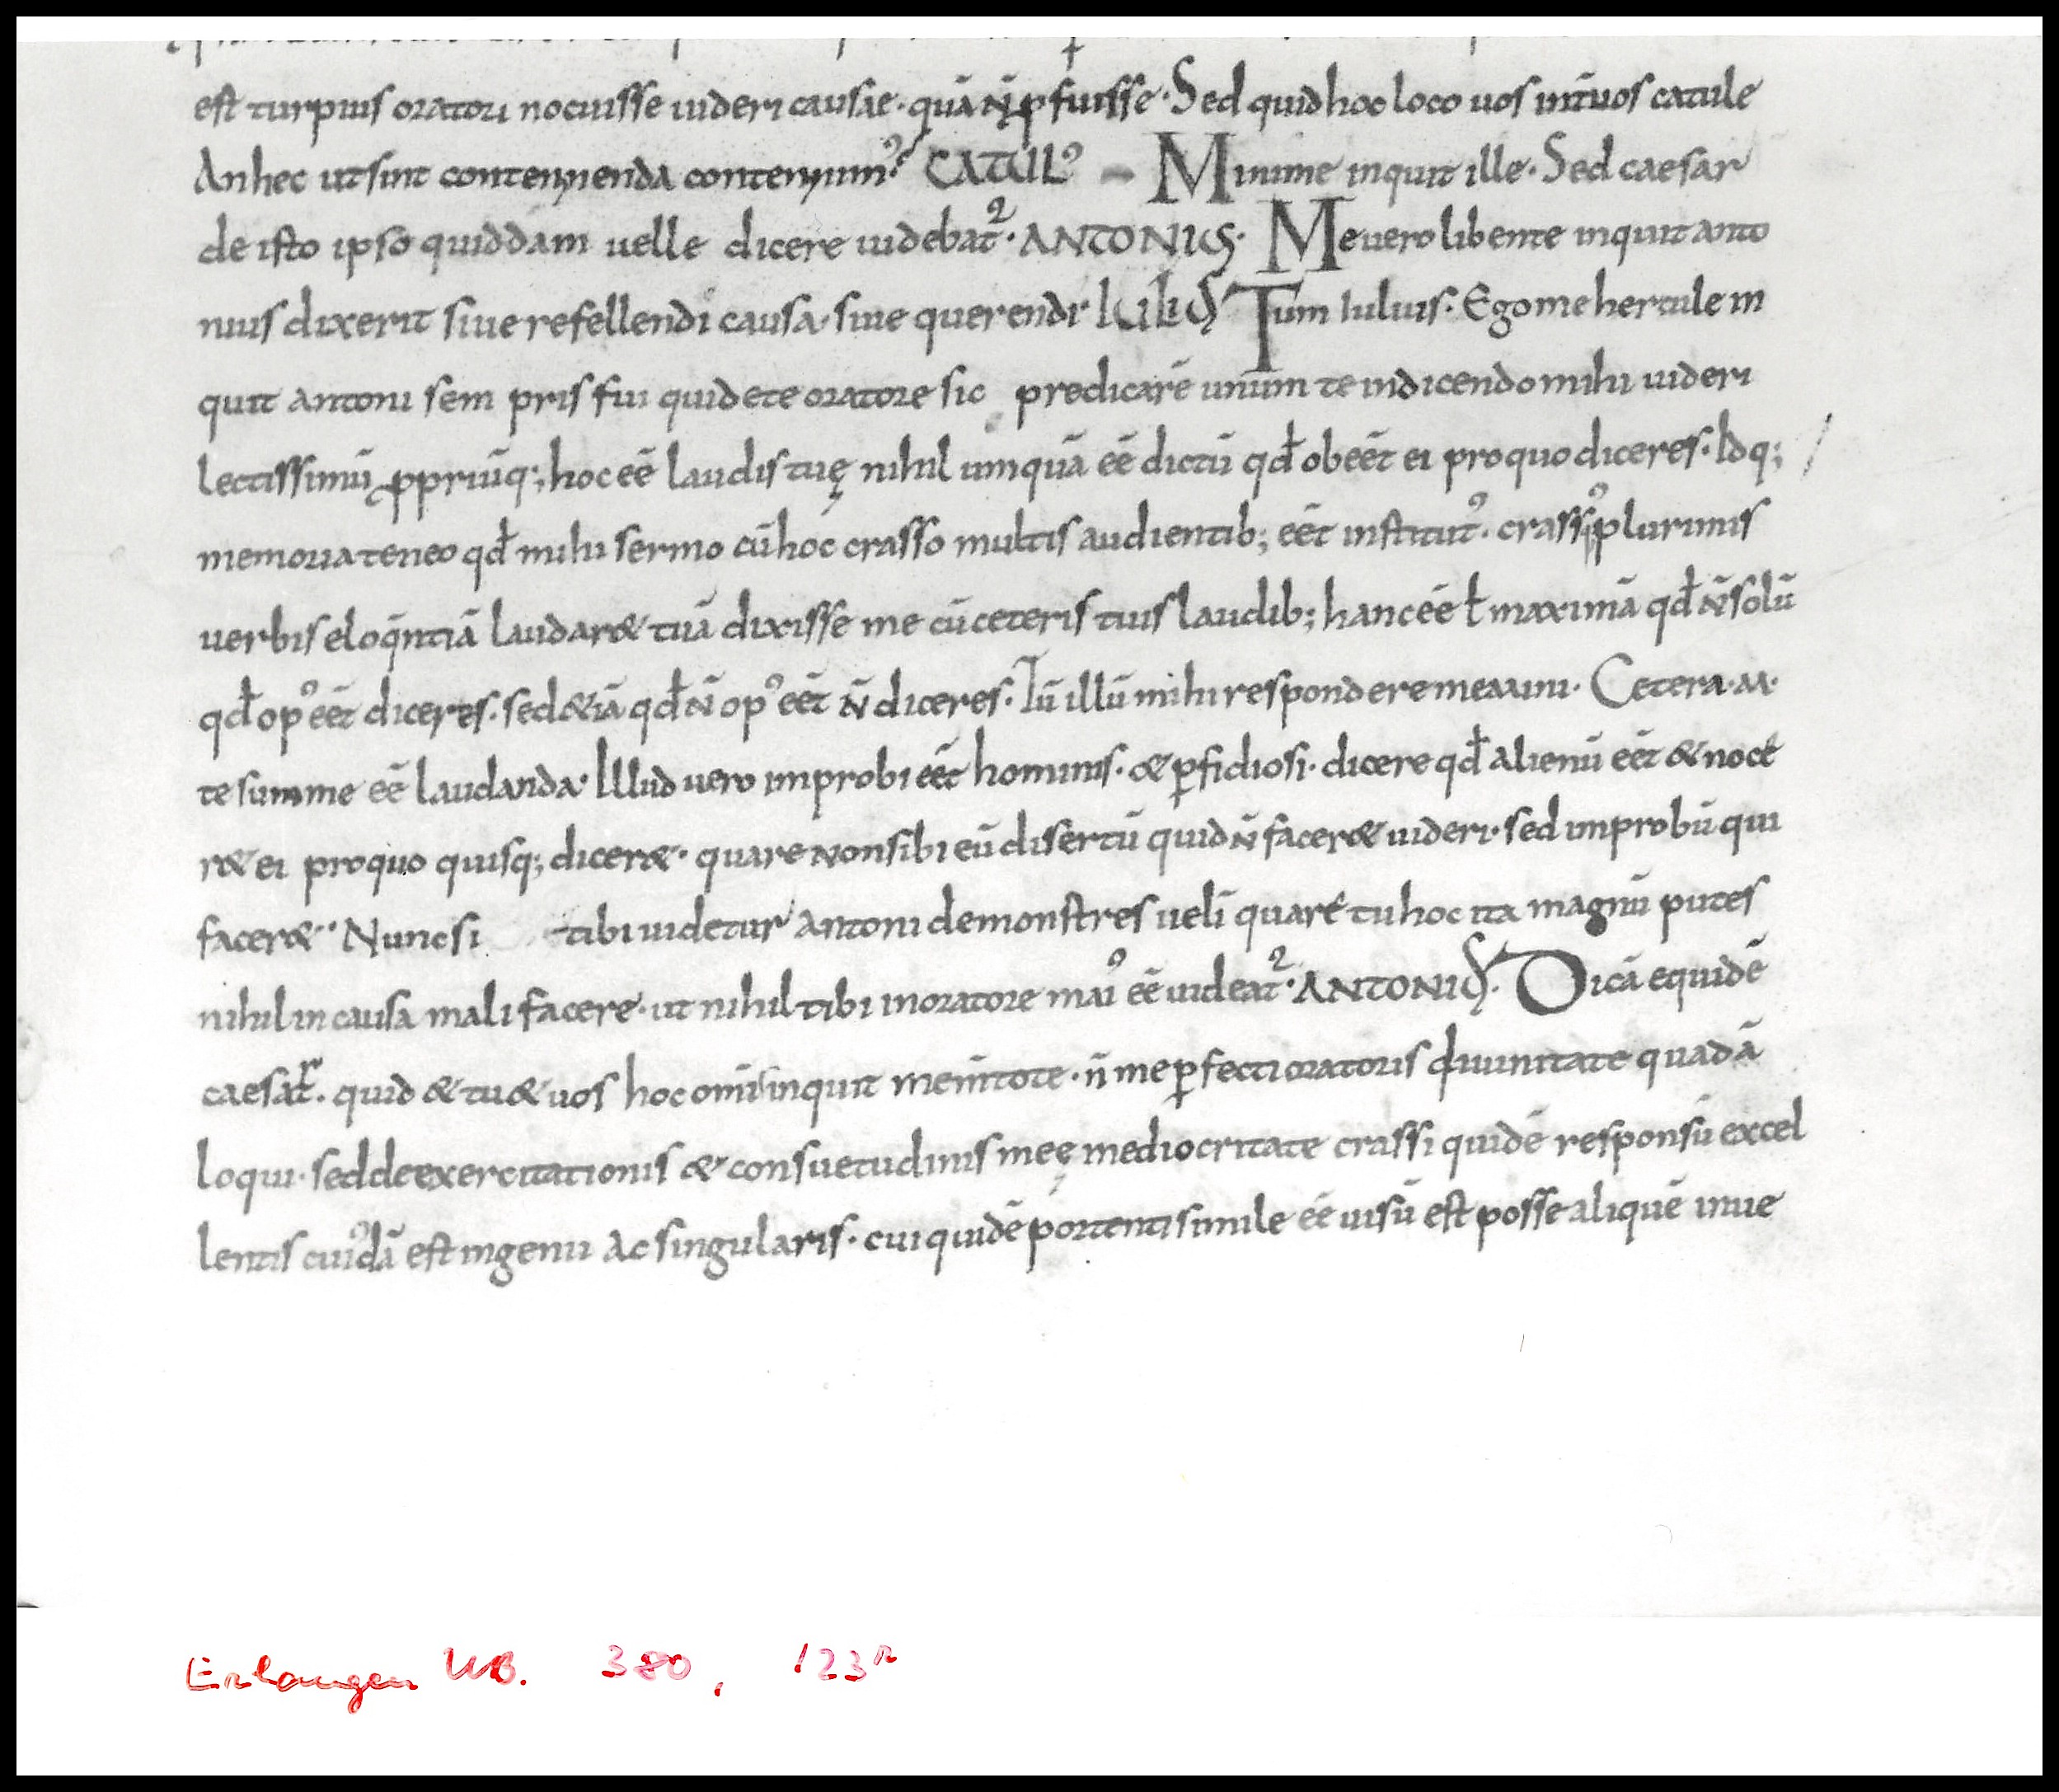 est turpius oratori nocuisse uideri causae· quā n̄ ꝓfuisse· Sed quid hoc loco uos int̄ uos catule
An hec ut sint contemnenda contemnim᾿ CATUL᾿ – Minime inquit ille· Sed caesar
de isto ipso quiddam uelle dicere uidebat᷑· ANTONIUS· Me uero libente inquit anto
nius dixerit siue refellendi causa· siue querendi· IULIUS Tum Iulius· Ego me hercule in
quit antoni sem pris fui qui de te oratore sic predicarē unum te in dicendo mihi uideri
lectissimū ꝓpriūq; hoc eē laudis tuę nihil umquā eē dictū qđ obeēt ei pro quo diceres· Idq;
memoria teneo qđ mihi sermo cū hoc crasso multis audientib; eēt institut᾿· crassusq plurimis
uerbis eloq̄ntiā laudar& tuā dixisse me cū ceteris tuis laudib; hanc eē ł maximā qđ n̄ solū
qđ op᾿ eēt diceres· sed &iā qđ n̄ op᾿ eēt n̄ diceres· Tū illū mihi respondere memini· Cetera· M·
te summe eē laudanda· Illud uero improbi eēt hominis· & ꝑfidiosi· dicere qđ alienū eēt & noce
r& ei pro quo quisq; dicer&· quare non sibi eū disertū qui id n̄ facer& uideri· sed improbū qui
facer&·· Nunc si tibi uidetur antoni demonstres uelī quare tu hoc ita magnū putes
nihil in causa mali facere· ut nihil tibi in oratore mai᾿ eē uideat᷑· ANTONIUS· Dicā equidē
caesar· quid & tu & uos hoc om̄s inquit mem̄tote· n̄ me ꝑfecti oratoris diuinitate quadā
loqui· sed de exercitationis & consuetudinis meę mediocritate crassi quidē responsū excel
lentis cui᾿dā est ingenii ac singularis· cui quidē portenti simile eē uisū est posse aliquē inue
Erlangen UB. 380, 123r